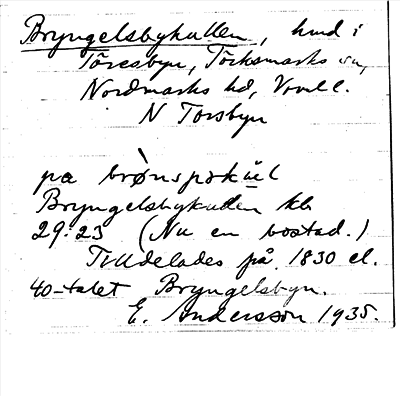 Bryngelsbykullen, hmd i
Töresbyn, Töcksmarks sn,
Nordmarks hd, Vrml l.
N Torsbyn
pa brønspskul
Bryngelsbykullen kb
29:23 (Nu en bostad.)
Tilldelades på 1830 el.
40-talet Bryngelsbyn.
E. Andersson 1935.